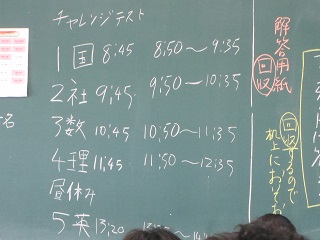 チャレンジテスト
1 国 8:45 8:50～9:35
2 社 9:45. 9:50～10:35
3 数 10:45 10:50～11:35
4 理 11:45 11:50～12:35
昼休み
5 英 13:20
解答用紙
回収
回収するので
机上に
名